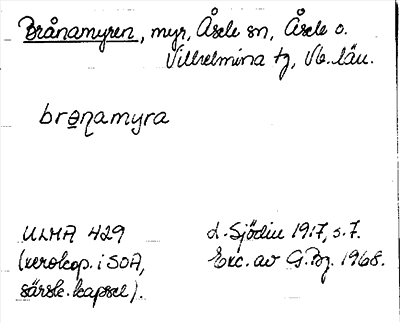 Brånamyren, myr, Åsele sn, Åsele o.
Vilhelmina tg, Vb. län.
brạn̥amyra
ULMA 429 d. Sjödin 1917, s. 7.
(xerokop. i SOA, Exc. av G. Bg. 1968.
särsk. kapsel).